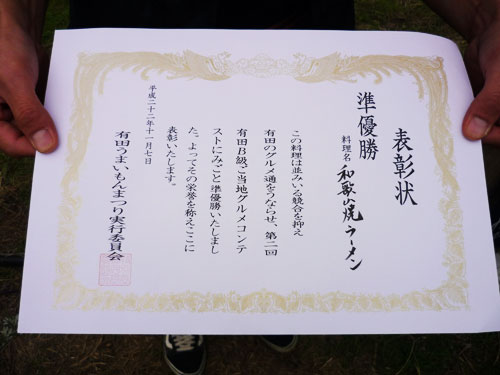 表彰状
準優勝
料理名 和歌山焼ラーメン
この料理は並みいる競合を抑え
有田のグルメ通をうならせ、第二回
有田B級ご当地グルメコンテ
ストにみごと準優勝いたしまし
た。よってその栄誉を称えここに
表彰いたします。
平成二十二年十一月七日
有田うまいもんまつり実行委員会